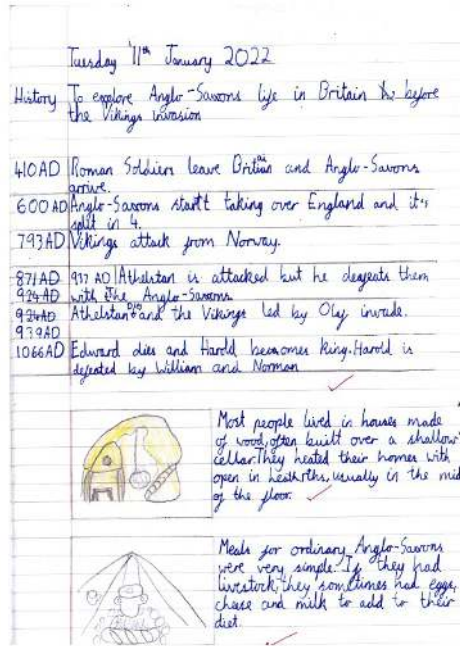 Tuesday 11th January 2022
History To explore Anglo-Saxons life in Britain before
the Vikings invasion
410AD Roman Soldiers leave Britain and Anglo-Saxons
arrive.
600AD Anglo-Saxons start taking over England and it's
split in 4.
793AD Vikings attack from Norway.
871AD 937 AD Athelstan is attacked but he defeats them
924AD with the Anglo-Saxons
924AD Athelstan and the Vikings led by Oly invade.
939AD
1066AD Edward dies and Harold becomes king. Harold is
defeated by William and Norman
Most people lived in houses made
of wood, often built over a shallow
cellar. They heated their homes with
open in hearths, usually in the mid
of the floor.
Meals for ordinary Anglo-Saxons
were very simple. If they had
livestock, they sometimes had eggs,
cheese and milk to add to their
diet.